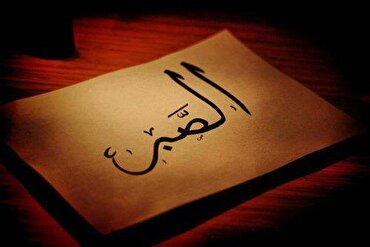 الصَّبْر